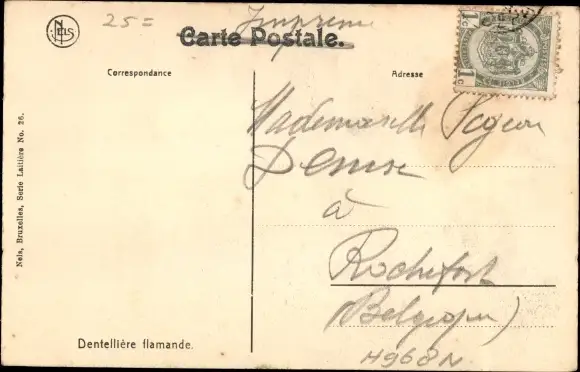 25=
Imprimé
Carte Postale.
Correspondance
Adresse
1c
1c
Mademoiselle Pegeon
Denise
à
Rochefort
(Belgique)
H968N
Nels, Bruxelles, Serie Laitière No. 26.
Dentellière flamande.